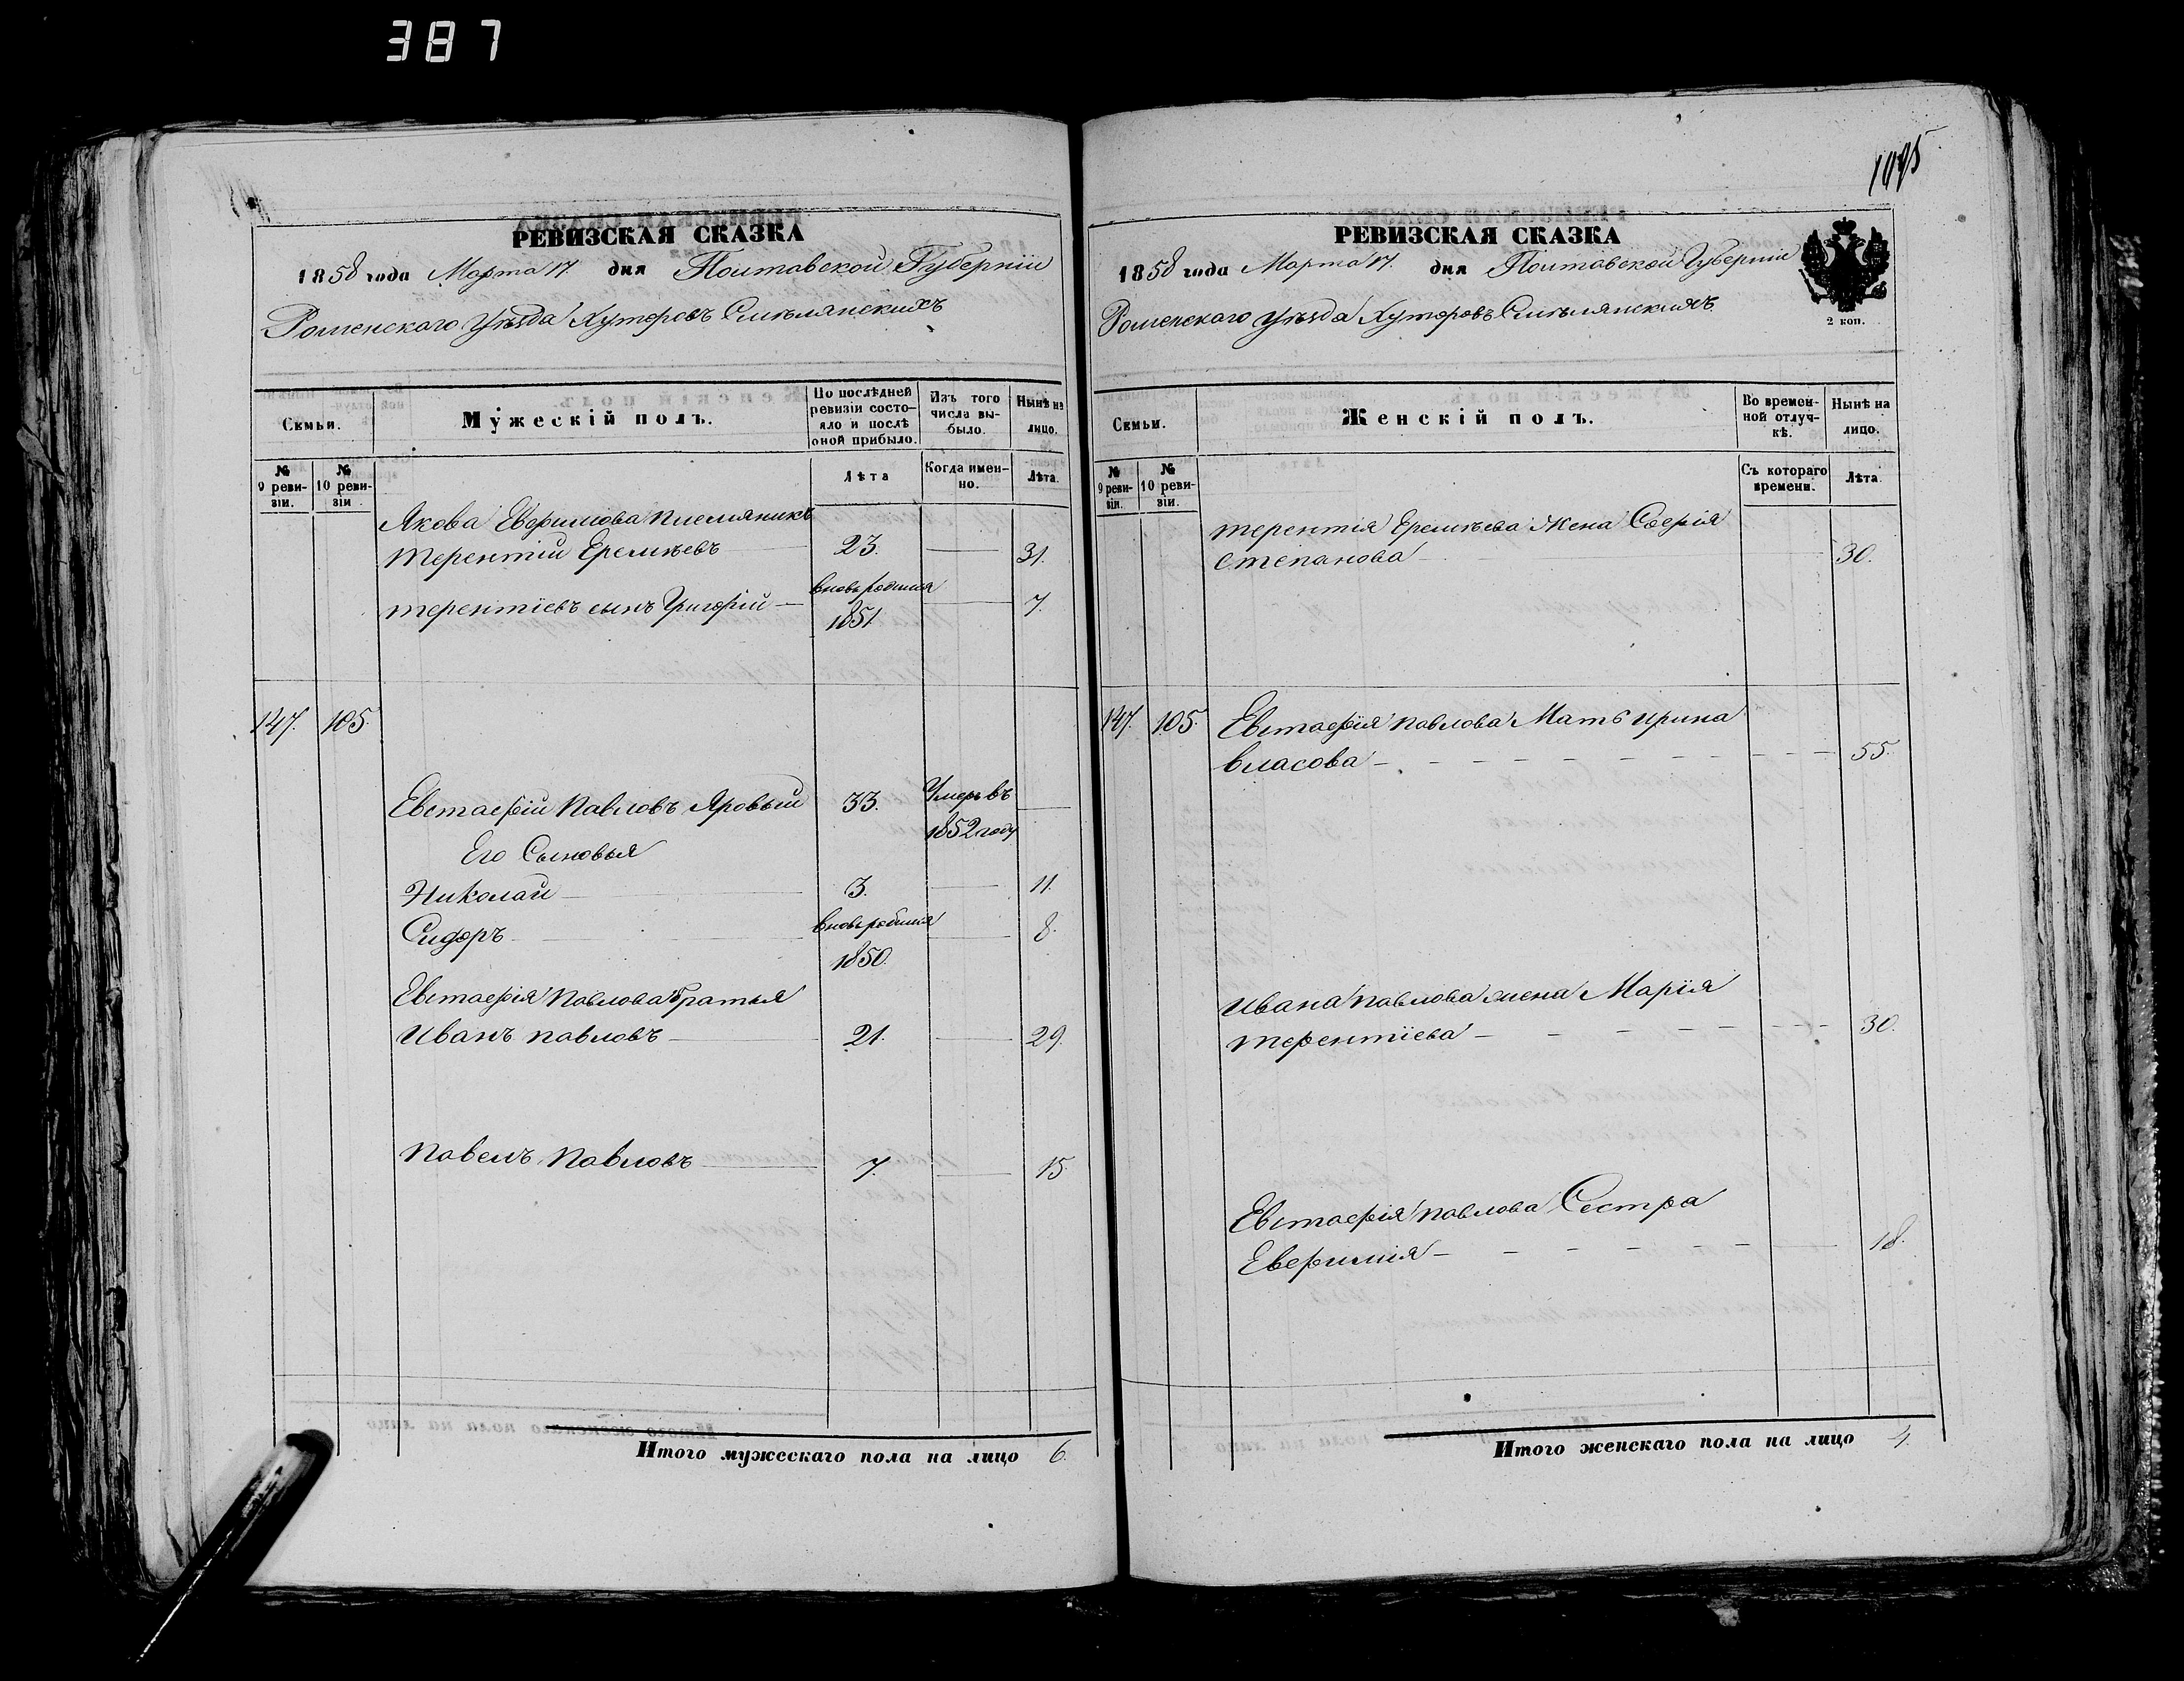 387
РЕВИЗСКАЯ СКАЗКА
1858 года Марта 17. дня Полтавской Губерніи
Роменскаго Уѣзда Хуторовъ Смѣлянскихъ
Семьи.
Мужескій полъ.
По послѣдней ревизіи состояло и послѣ оной прибыло.
Изъ того числа выбыло.
Нынѣ на лицо.
№ 9 ревизіи.
№ 10 ревизіи
Лѣта
Когда именно.
Лѣта.
Якова Евфимова племяникъ
Терентій Еремѣевъ 23. 31.
вновь родился
терентіевъ сынъ Григорій 1851 7.
147. 105.
Евстафій Павловъ Яровый 33. Умеръ въ
1852 году
Его Сыновья
Николай 3. 11.
Сидоръ вновь родился 8.
1850.
Евстафія Павлова братья
Иванъ павловъ 21. 29.
Павелъ Павловъ 7. 15.
Итого мужескаго пола на лицо 6.
1095
РЕВИЗСКАЯ СКАЗКА
1858 года Марта 17. дня Полтавской Губерніи
Роменскаго Уѣзда Хуторовъ Смѣлянскихъ
2 коп.
Семьи.
Женскій полъ.
Во временной отлучкѣ.
Нынѣ на лицо.
№ 9 ревизіи.
№ 10 ревизіи.
Съ котораго времени.
Лѣта.
терентія Еремѣева Жена Софія
степанова 30.
147. 105. Евстафія павлова Мать ирина
власова 55.
Ивана павлова жена Марія
терентіева 30.
Евстафія павлова Сестра
Евфимія 18.
Итого женскаго пола на лицо 4.